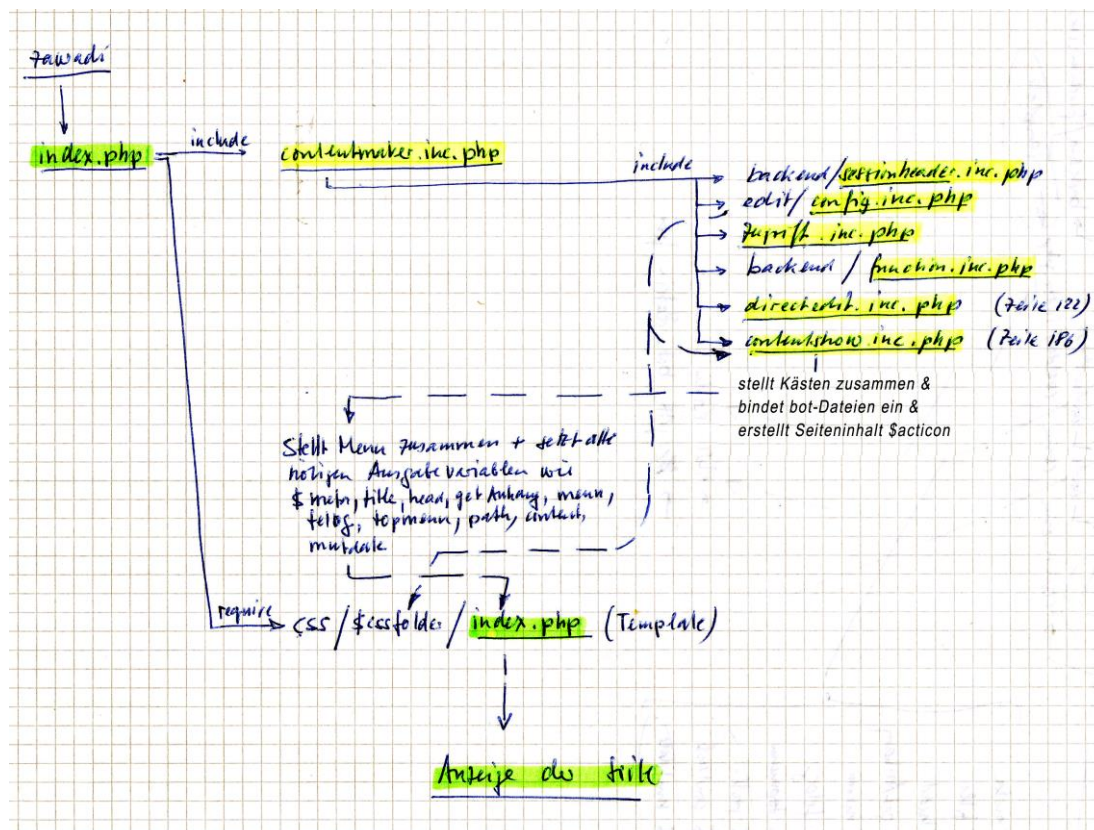 zawadi
index.php include contentmaker.inc.php
include
backend/sessionheader.inc.php
edit/config.inc.php
zugriff.inc.php
backend/function.inc.php
directedit.inc.php (Zeile 122)
contentshow.inc.php (Zeile 186)
stellt Kästen zusammen &
bindet bot-Dateien ein &
erstellt Seiteninhalt $acticon
Stellt Menu zusammen + setzt alle
nötigen Ausgabevariablen wie
title, head, get Anhang, menu,
topmenu, path, content,
mutdate
require css/$cssfolder/index.php (Template)
Anzeige der Seite